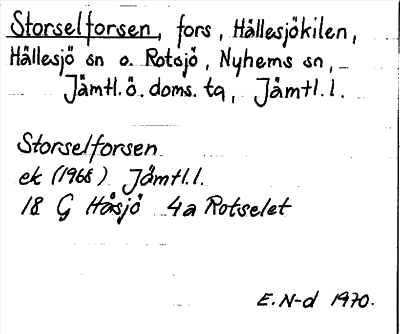 Storselforsen, fors, Hållesjökilen,
Hållesjö sn o. Rotsjö, Nyhems sn,
Jämtl.ö.doms.ta, Jämtl.l.
Storselforsen
ek (1966) Jämtl.l.
18 G Håsjö 4a Rotselet
E.N-d 1970.